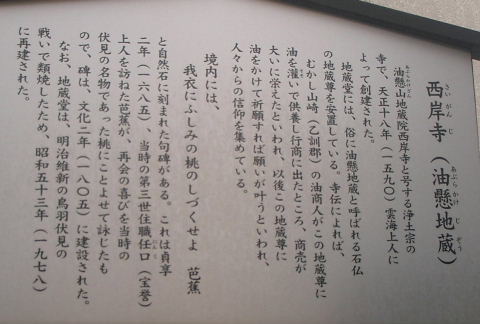 西岸寺(油懸地蔵)
さいがんじ あぶらかけじぞう
油懸山地蔵院西岸寺と号する浄土宗の
あぶらかけざん
寺で、天正十八年(一五九〇)雲海上人に
よって創建された。
地蔵堂には、俗に油懸地蔵と呼ばれる石仏
の地蔵尊を安置している。寺伝によれば、
むかし山崎(乙訓郡)の油商人がこの地蔵尊に
油を灌いで供養し行商に出たところ、商売が
大いに栄えたといわれ、以後この地蔵尊に
油をかけて祈願すれば願いが叶うといわれ、
人々からの信仰を集めている。
境内には、
我衣にふしみの桃のしづくせよ 芭蕉
と自然石に刻まれた句碑がある。これは貞享
二年(一六八五)、当時の第三世住職任口(宝誉)
上人を訪ねた芭蕉が、再会の喜びを当時の
伏見の名物であった桃にことよせて詠じたも
ので、碑は、文化二年(一八〇五)に建設された。
なお、地蔵堂は、明治維新の鳥羽伏見の
戦いで類焼したため、昭和五十三年(一九七八)
に再建された。